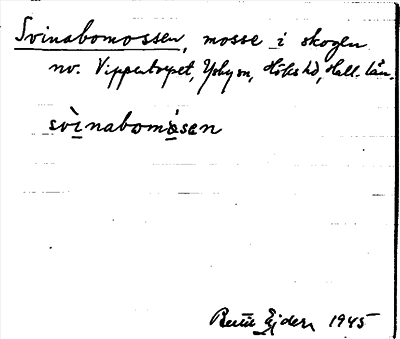 Svinabomossen, mosse i skogen
nv. Vippentorpet, Ysby sn, Höks hd, Hall. län.
svìnabomósen
Bertil Ejder 1945